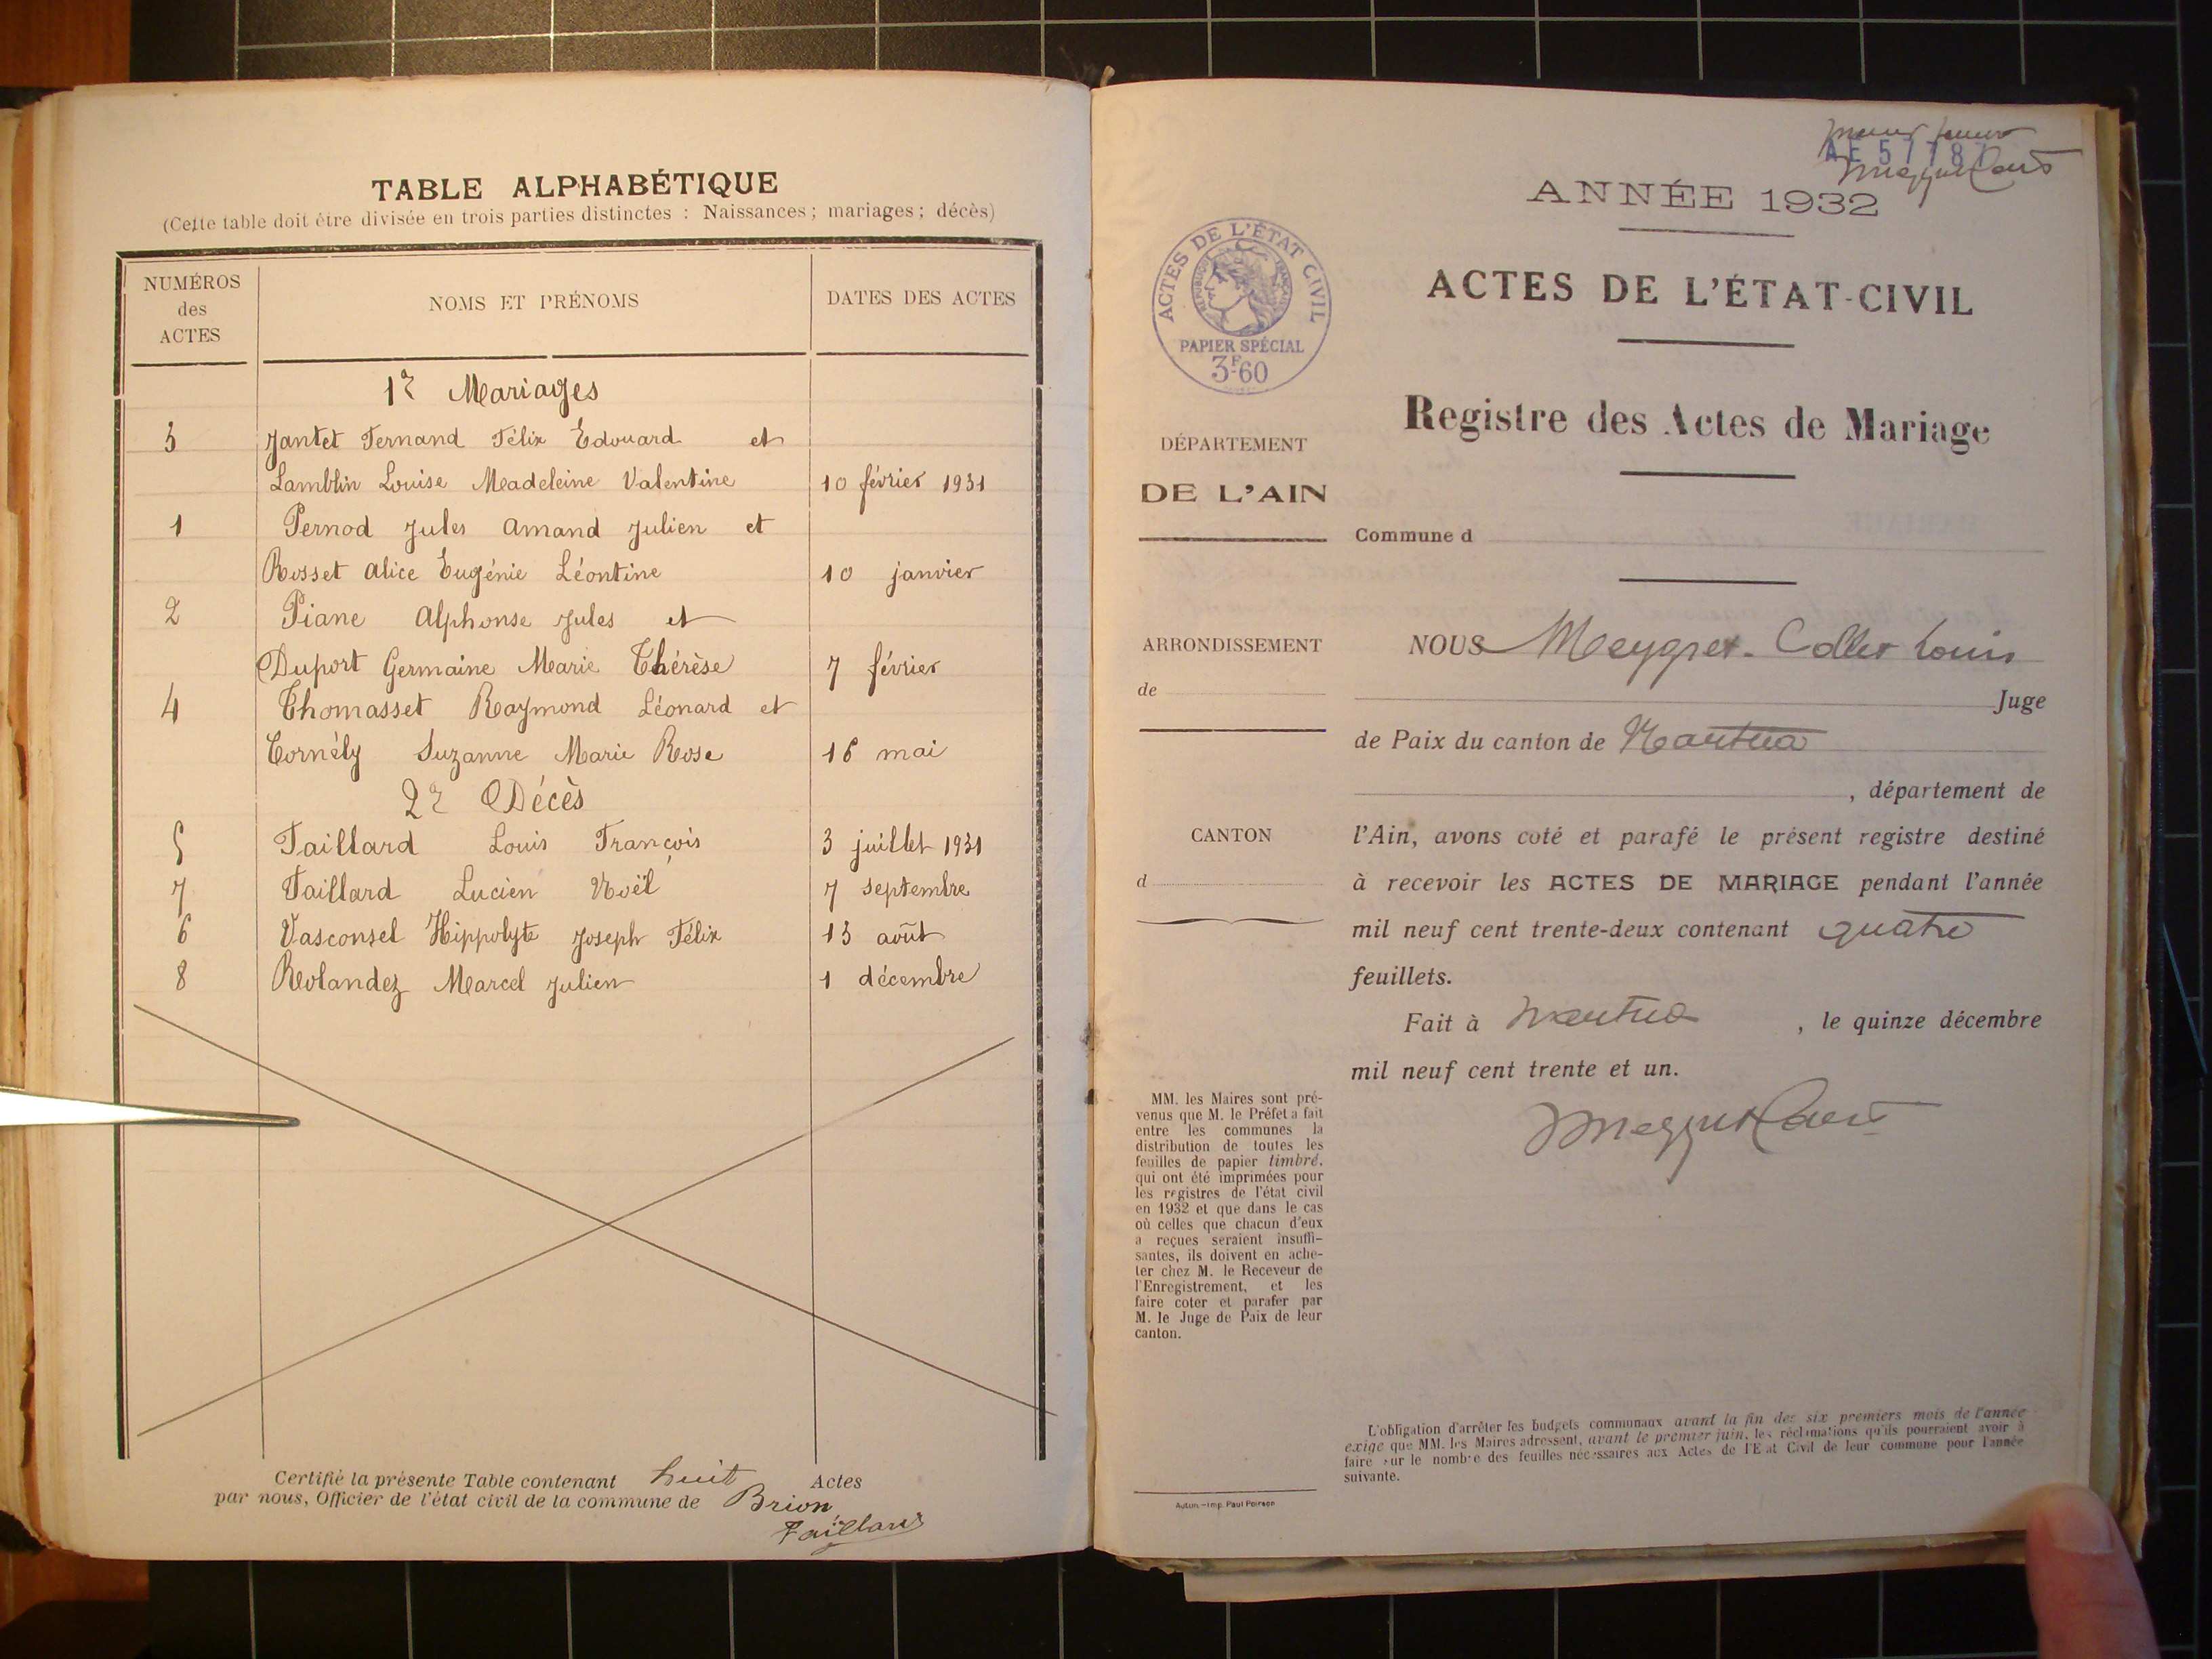 TABLE ALPHABÉTIQUE
(Cette table doit être divisée en trois parties distinctes : Naissances ; mariages ; décès)
NUMÉROS
des
ACTES
NOMS ET PRÉNOMS
DATES DES ACTES
1º Mariages
3 Jantet Fernand Félix Edouard et
Lamblin Louise Madeleine Valentine 10 février 1931
1 Pernod Jules Amand Julien et
Rosset Alice Eugénie Léontine 10 janvier
2 Piane Alphonse Jules et
Duport Germaine Marie Thérèse 7 février
4 Thomasset Raymond Léonard et
Cornély Suzanne Marie Rose 16 mai
2º Décès
5 Taillard Louis François 3 juillet 1931
7 Taillard Lucien Noël 7 septembre
6 Vasconsel Hippolyte Joseph Félix 13 août
8 Rolandez Marcel Julien 1 décembre
Certifié la présente Table contenant huit Actes
par nous, Officier de l'état civil de la commune de Brion
Taillard
ANNÉE 1932
ACTES DE L'ÉTAT CIVIL
RÉPUBLIQUE FRANÇAISE
PAPIER SPÉCIAL
3F60
ACTES DE L'ÉTAT-CIVIL
Registre des Actes de Mariage
DÉPARTEMENT
DE L'AIN
Commune d
ARRONDISSEMENT
de
CANTON
d
NOUS Meygret-Collet Louis
Juge
de Paix du canton de Nantua
, département de
l'Ain, avons coté et parafé le présent registre destiné
à recevoir les ACTES DE MARIAGE pendant l'année
mil neuf cent trente-deux contenant quatre
feuillets.
Fait à Nantua , le quinze décembre
mil neuf cent trente et un.
MM. les Maires sont pré-
venus que M. le Préfet a fait
entre les communes la
distribution de toutes les
feuilles de papier timbré,
qui ont été imprimées pour
les registres de l'état civil
en 1932 et que dans le cas
où celles que chacun d'eux
a reçues seraient insuffi-
santes, ils doivent en ache-
ter chez M. le Receveur de
l'Enregistrement, et les
faire coter et parafer par
M. le Juge de Paix de leur
canton.
L'obligation d'arrêter les budgets communaux avant la fin des six premiers mois de l'année
exige que MM. les Maires adressent, avant le premier juin, les réclamations qu'ils pourraient avoir à
faire sur le nombre des feuilles nécessaires aux Actes de l'Etat Civil de leur commune pour l'année
suivante.
Autun. - Imp. Paul Poirson